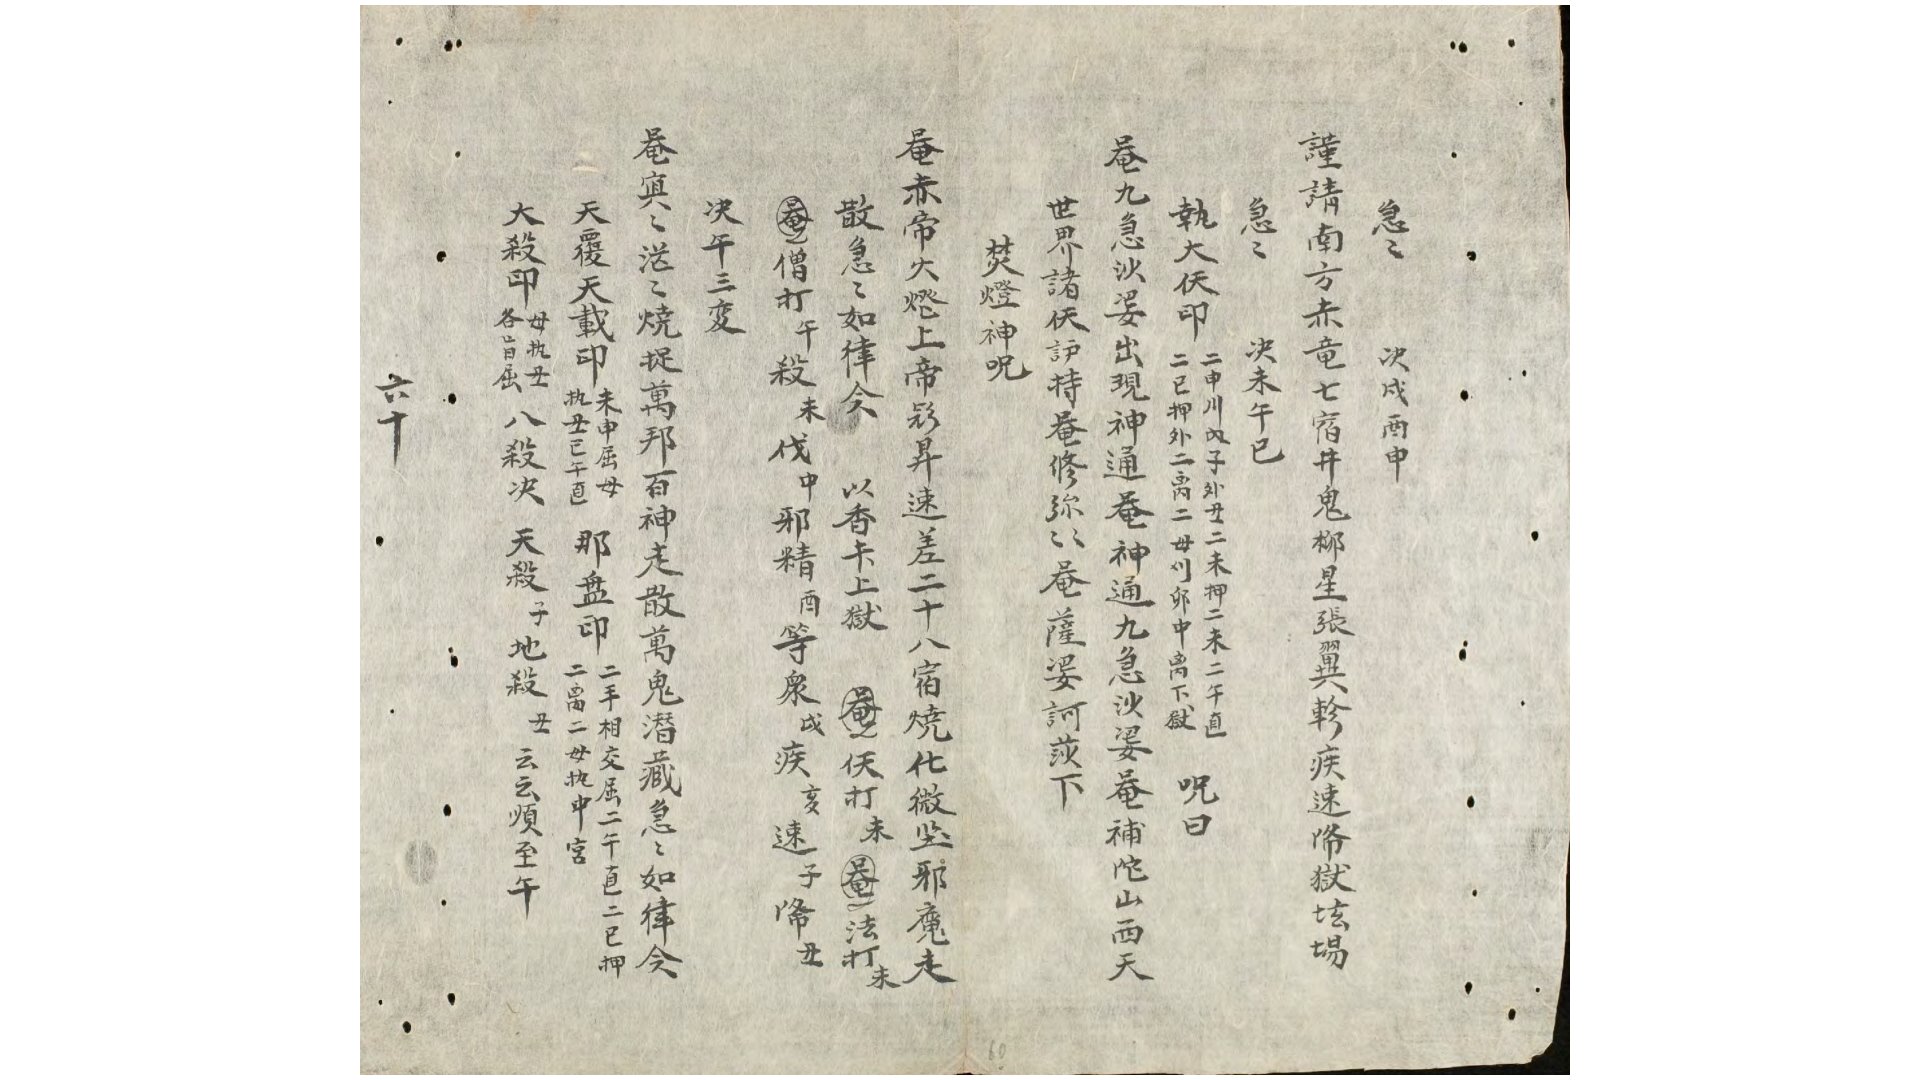 急〻 决戌酉申
謹請南方赤竜七宿井鬼柳星張翼軫疾速降獄坛場
急〻 决未午巳
執大伏印 二申川内子外丑二未押二未二午直 二巳押外二离二毋刈卯中离下獄 呪曰
唵九急沙婆出現神通唵神通九急沙婆唵補陀山西天
世界諸伏护持唵修弥〻唵薩婆訶莎下
焚燈神呪
唵赤帝火燈上帝昇速差二十八宿燒化微塵邪魔走
散急〻如律令 以香卡上獄 唵伏打未 唵法打未
唵僧打午殺未伐申邪精酉等衆戌疾亥速子降丑
决午三变
唵寘〻茫〻燒捉萬邦百神走散萬鬼潜藏急〻如律令
天覆天載印 未申屈毋 执丑巳午直 那盘印 二手相交屈二午直二巳押 二离二毋执中宮
大殺印 毋执丑 各旨屈 八殺决 天殺子地殺丑云云順至午
六十
60